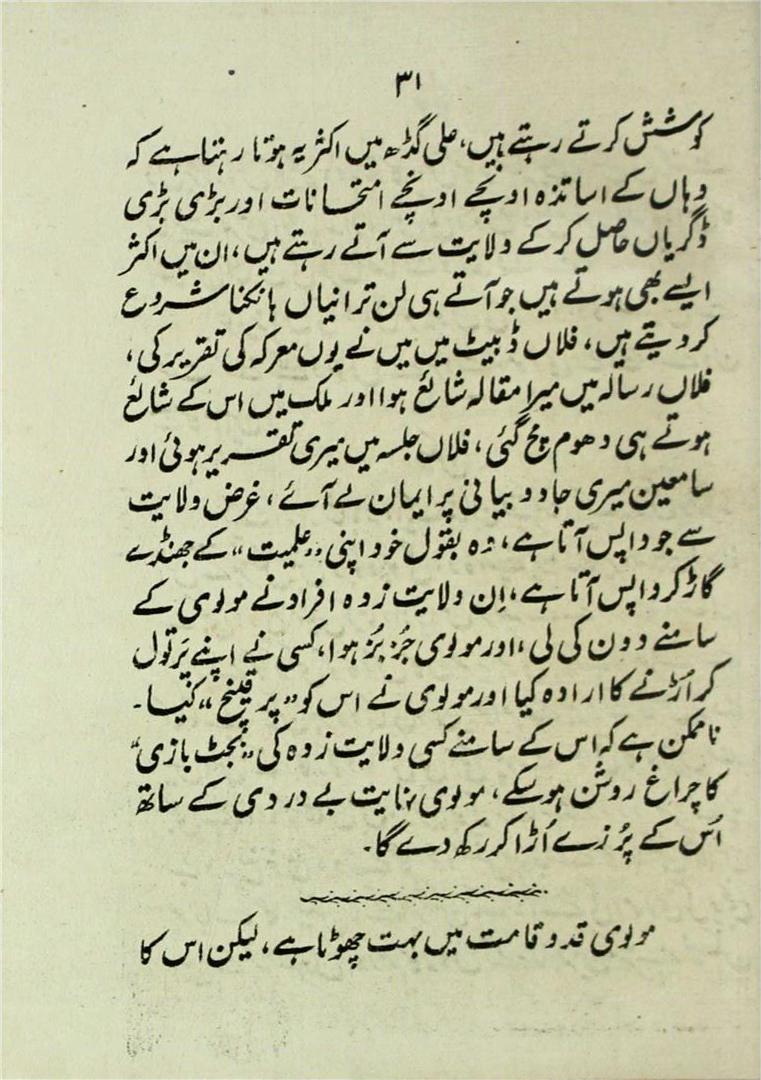 ۳۱
کوشش کرتے رہتے ہیں، علی گڈھ میں اکثر یہ ہوتا رہتا ہے کہ
وہاں کے اساتذہ اونچے اونچے امتحانات اور بڑی بڑی
ڈگریاں حاصل کر کے ولایت سے آتے رہتے ہیں، ان میں اکثر
ایسے بھی ہوتے ہیں جو آتے ہی لن ترانیاں ہانکنا شروع
کر دیتے ہیں، فلاں ڈبیٹ میں میں نے یوں معرکہ کی تقریر کی،
فلاں رسالہ میں میرا مقالہ شائع ہوا اور ملک میں اس کے شائع
ہوتے ہی دھوم مچ گئی، فلاں جلسہ میں میری تقریر ہوئی اور
سامعین میری جادو بیانی پر ایمان لے آئے، غرض ولایت
سے جو واپس آتا ہے، وہ بقول خود اپنی "علمیت" کے جھنڈے
گاڑ کر واپس آتا ہے، اِن ولایت زدہ افراد نے مولوی کے
سامنے دون کی لی، اور مولوی جُز بُز ہوا، کسی نے اپنے پَر تول
کر اُڑنے کا ارادہ کیا اور مولوی نے اس کو "پر قینچ" کیا۔
ناممکن ہے کہ اس کے سامنے کسی ولایت زدہ کی "بازی"
کا چراغ روشن ہو سکے، مولوی نہایت بے دردی کے ساتھ
اُس کے پُرزے اُڑا کر رکھ دے گا۔
مولوی قد و قامت میں بہت چھوٹا ہے، لیکن اس کا